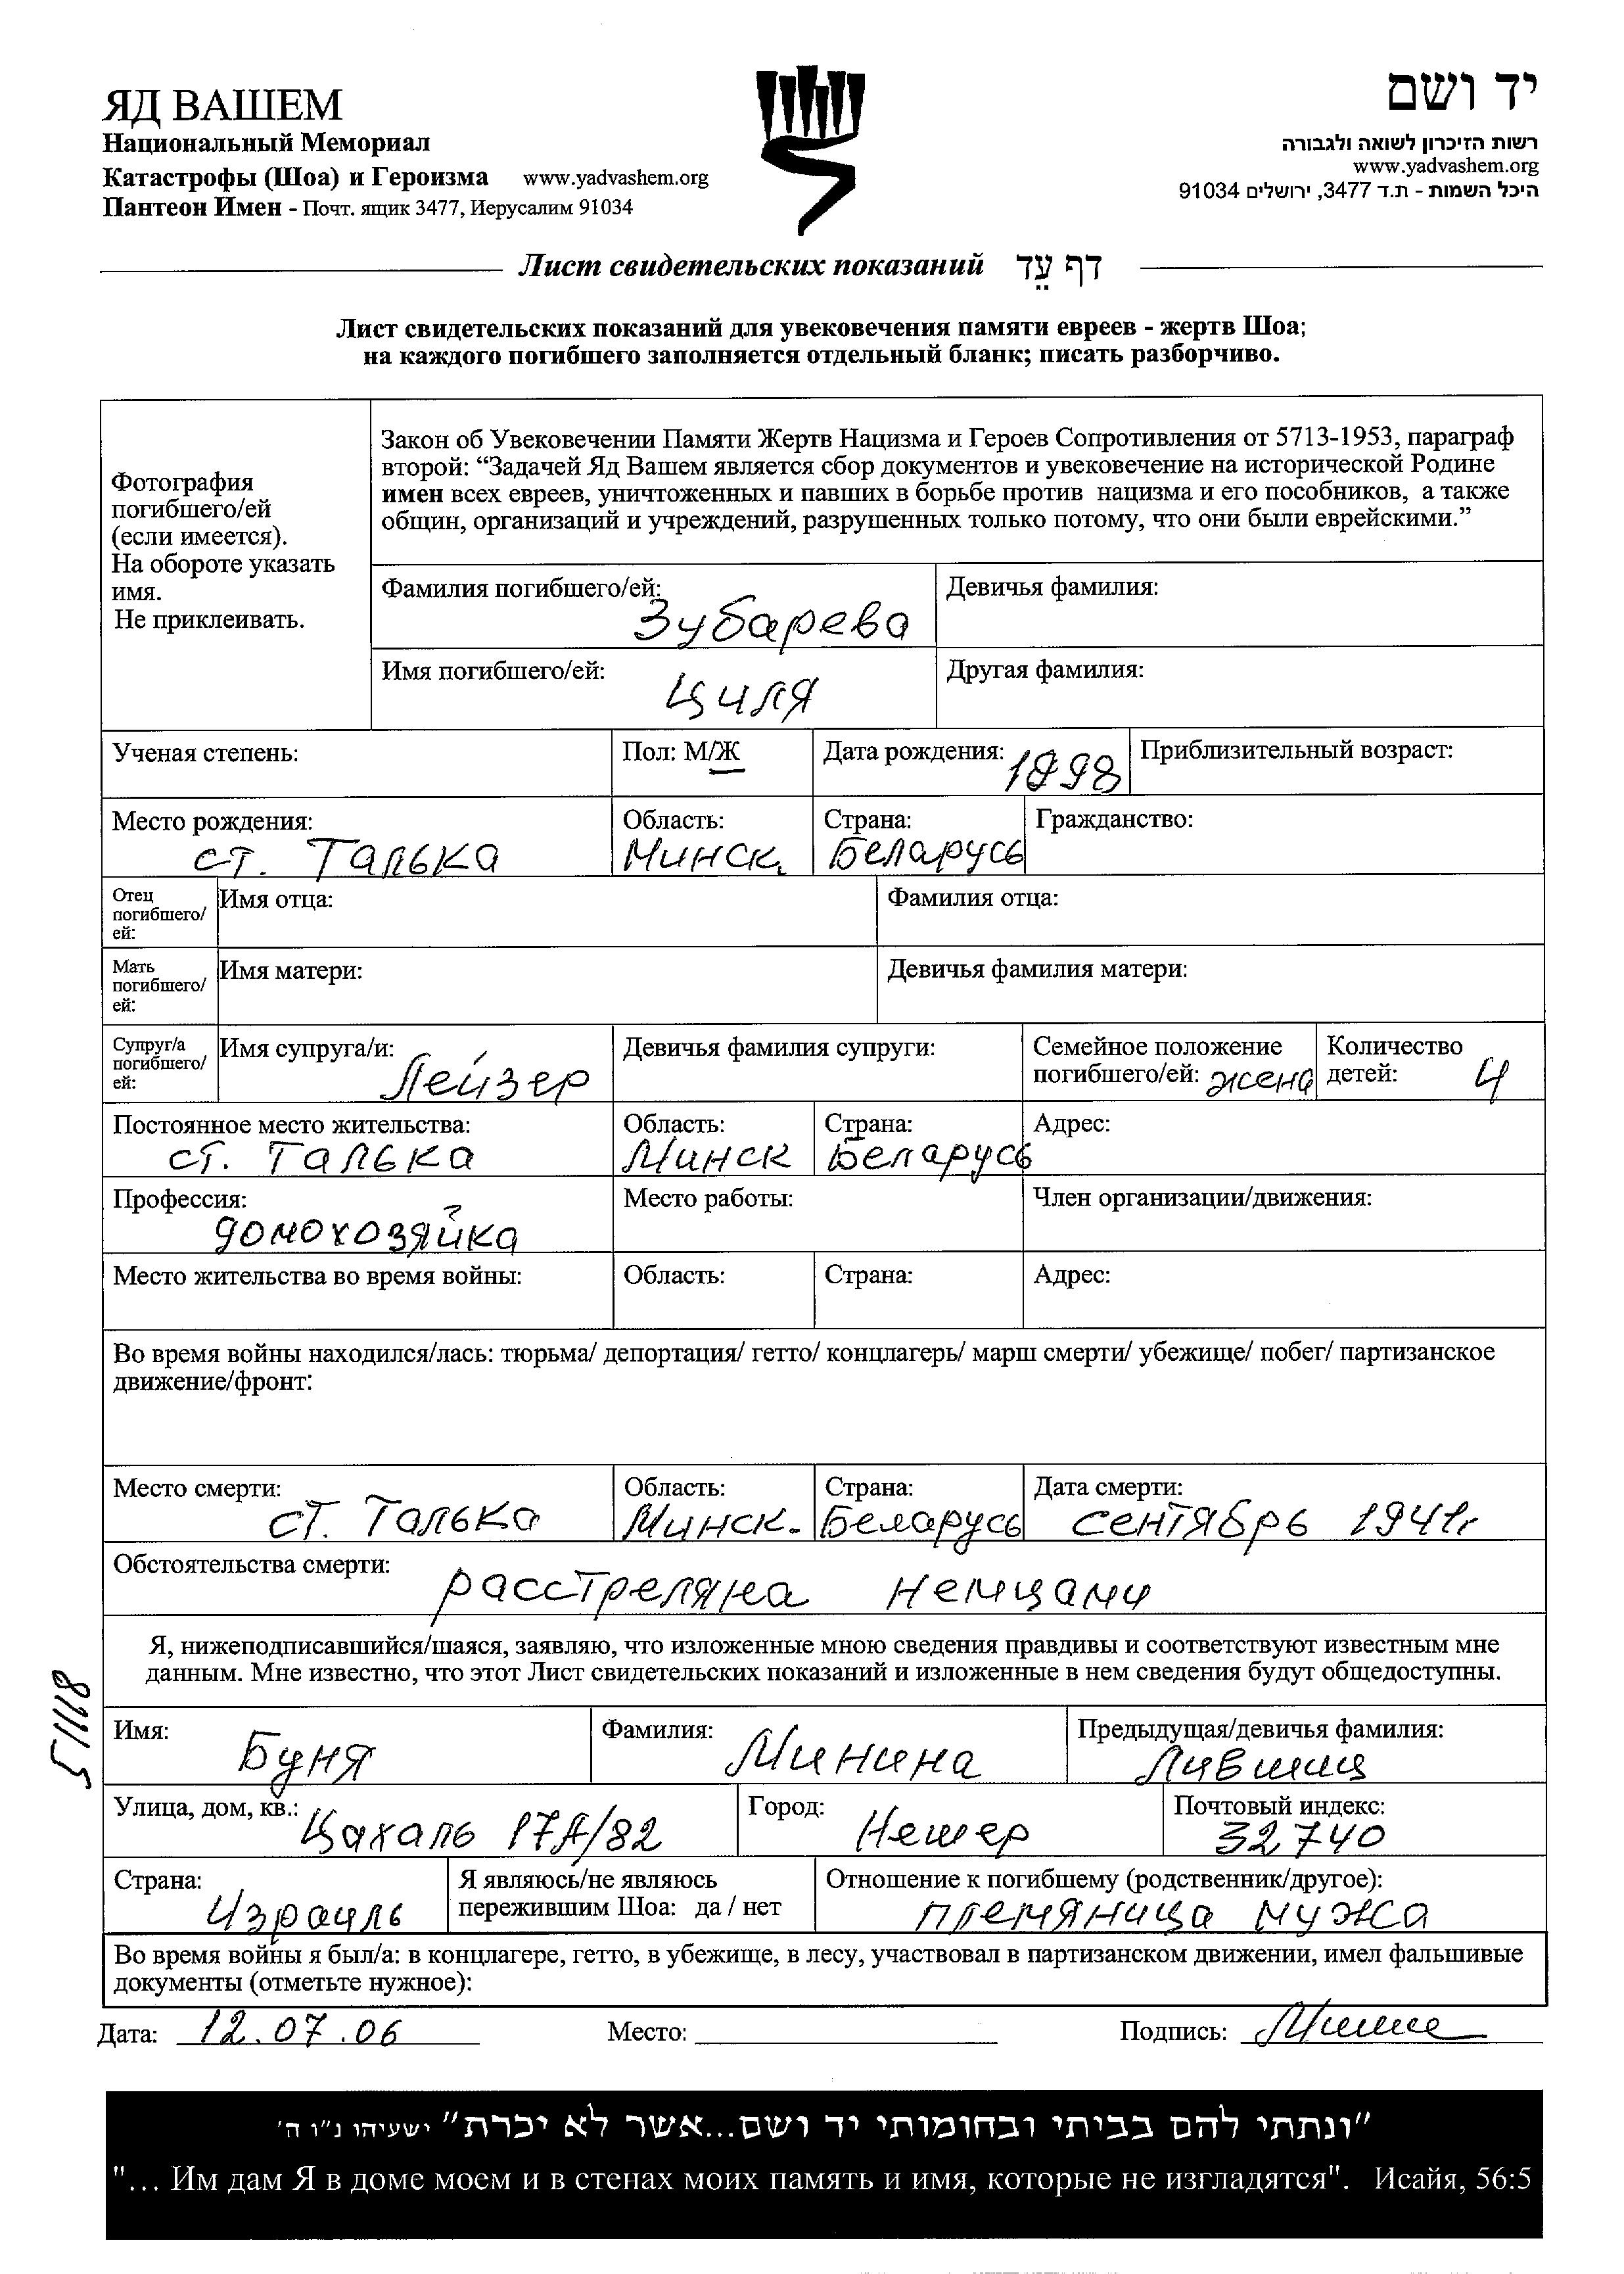 ЯД ВАШЕМ
Национальный Мемориал
Катастрофы (Шоа) и Героизма www.yadvashem.org
Пантеон Имен - Почт. ящик 3477, Иерусалим 91034
יד ושם
רשות הזיכרון לשואה ולגבורה
www.yadvashem.org
היכל השמות - ת.ד 3477, ירושלים 91034
Лист свидетельских показаний דף עֵד
Лист свидетельских показаний для увековечения памяти евреев - жертв Шоа;
на каждого погибшего заполняется отдельный бланк; писать разборчиво.
Фотография
погибшего/ей
(если имеется).
На обороте указать
имя.
Не приклеивать.
Закон об Увековечении Памяти Жертв Нацизма и Героев Сопротивления от 5713-1953, параграф
второй: “Задачей Яд Вашем является сбор документов и увековечение на исторической Родине
имен всех евреев, уничтоженных и павших в борьбе против нацизма и его пособников, а также
общин, организаций и учреждений, разрушенных только потому, что они были еврейскими.”
Фамилия погибшего/ей: Зубарева
Девичья фамилия:
Имя погибшего/ей: Циля
Другая фамилия:
Ученая степень:
Пол: М/Ж
Дата рождения: 1898
Приблизительный возраст:
Место рождения: ст. Талька
Область: Минск.
Страна: Беларусь
Гражданство:
Отец
погибшего/
ей:
Имя отца:
Фамилия отца:
Мать
погибшего/
ей:
Имя матери:
Девичья фамилия матери:
Супруг/а
погибшего/
ей:
Имя супруга/и: Лейзер
Девичья фамилия супруги:
Семейное положение
погибшего/ей: жена
Количество
детей: 4
Постоянное место жительства: ст. Талька
Область: Минск
Страна: Беларусь
Адрес:
Профессия: домохозяйка
Место работы:
Член организации/движения:
Место жительства во время войны:
Область:
Страна:
Адрес:
Во время войны находился/лась: тюрьма/ депортация/ гетто/ концлагерь/ марш смерти/ убежище/ побег/ партизанское
движение/фронт:
Место смерти: ст. Талька
Область: Минск.
Страна: Беларусь
Дата смерти: сентябрь 1941г
Обстоятельства смерти: расстреляна немцами
Я, нижеподписавшийся/шаяся, заявляю, что изложенные мною сведения правдивы и соответствуют известным мне
данным. Мне известно, что этот Лист свидетельских показаний и изложенные в нем сведения будут общедоступны.
Имя: Буня
Фамилия: Минина
Предыдущая/девичья фамилия: Лившиц
Улица, дом, кв.: Цахаль 17А/82
Город: Нешер
Почтовый индекс: 32740
Страна: Израиль
Я являюсь/не являюсь
пережившим Шоа: да / нет
Отношение к погибшему (родственник/другое): племяница мужа
Во время войны я был/а: в концлагере, гетто, в убежище, в лесу, участвовал в партизанском движении, имел фальшивые
документы (отметьте нужное):
Дата: 12.07.06 Место: Подпись:
"ונתתי להם בביתי ובחומותי יד ושם...אשר לא יכרת" ישעיהו נ"ו ה'
"... Им дам Я в доме моем и в стенах моих память и имя, которые не изгладятся". Исайя, 56:5